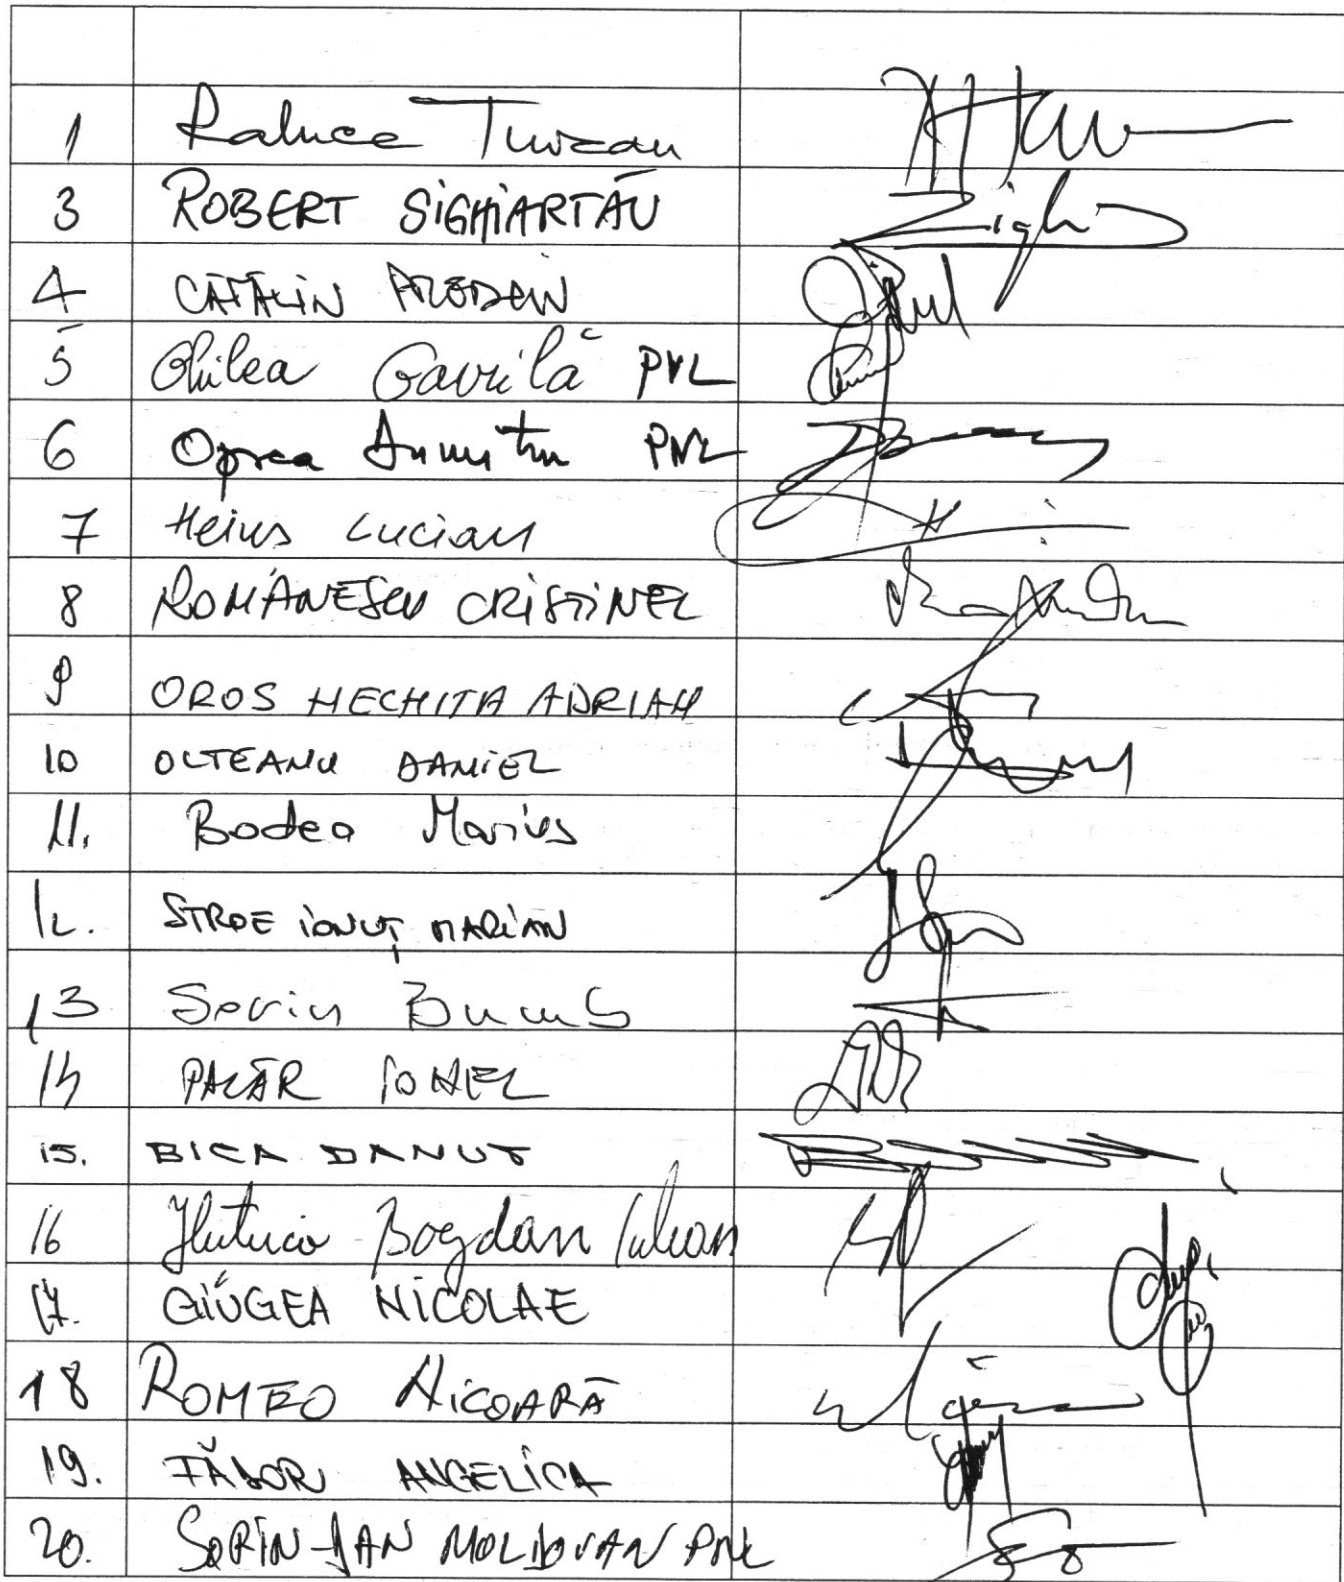 1 Raluca Turcan
3 ROBERT SIGHIARTĂU
4 CĂTĂLIN PREDOIU
5 Ghilea Gavrilă PNL
6 Oprea Dumitru PNL
7 Heius Lucian
8 ROMÂNESCU CRISTINEL
9 OROS NECHITA ADRIAN
10 OLTEANU DANIEL
11. Bodea Marius
12. STROE IONUȚ MARIAN
13 Sorin Bumb
14 PALĂR IONEL
15. BICA DANUT
16 Hutuca Bogdan Iulian
17. GIUGEA NICOLAE
18 ROMEO NICOARĂ
19. FĂDOR ANGELICA
20. SORIN-DAN MOLDOVAN PNL